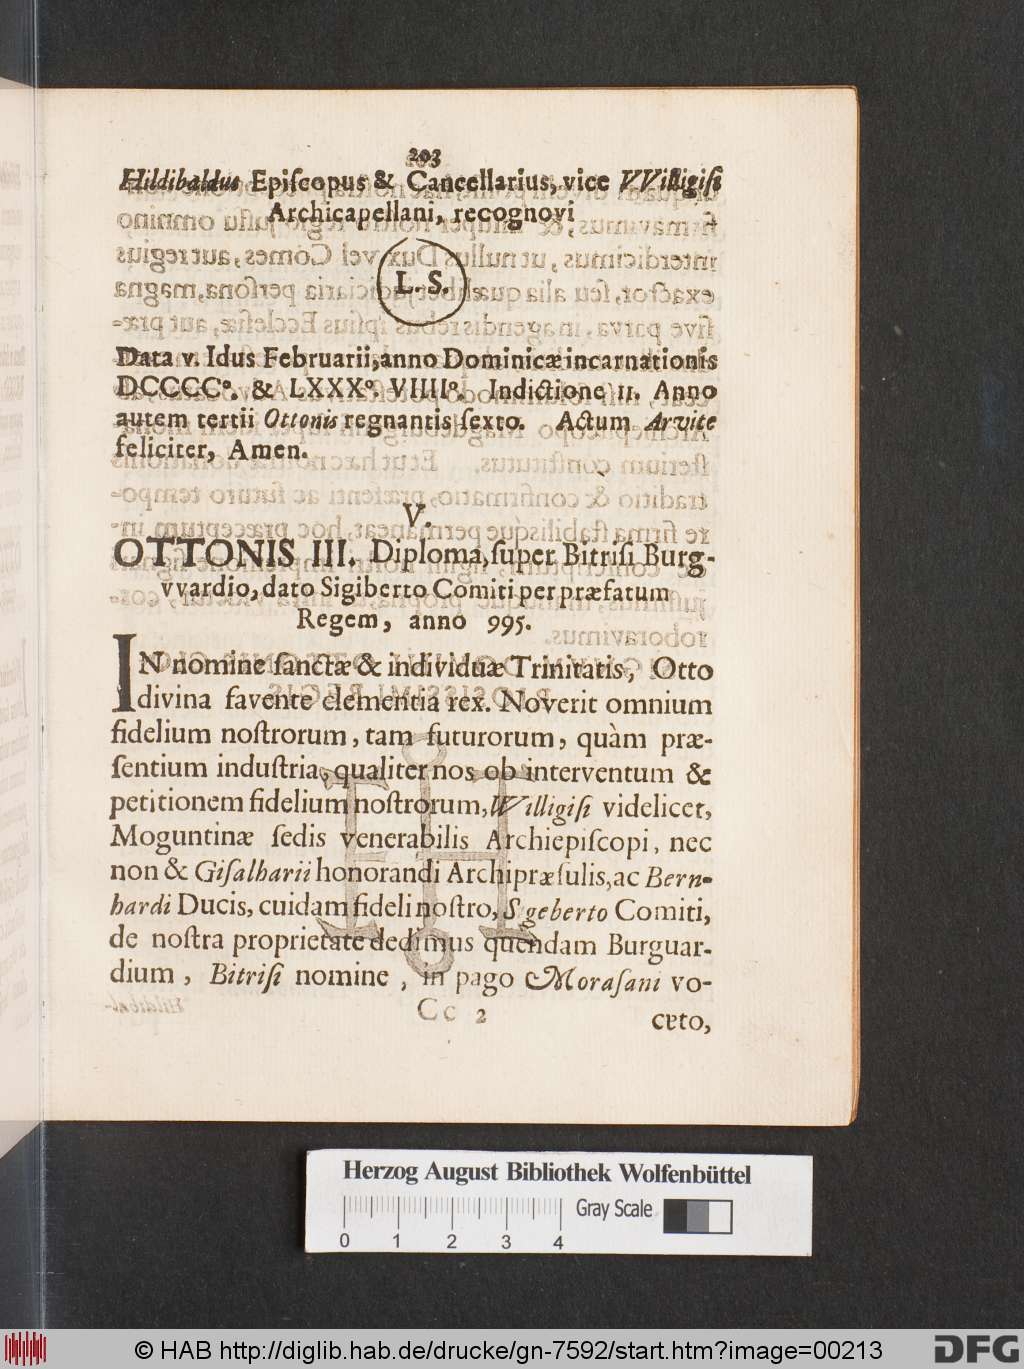 203
Hildibaldus Epiſcopus & Cancellarius, vice VVilligiſi
Archicapellani, recognovi
L. S.
Data v. Idus Februarii, anno Dominicæ incarnationis
DCCCCº. & LXXXº. VIIIIº. Indictione II. Anno
autem tertii Ottonis regnantis ſexto. Actum Arvite
feliciter, Amen.
V.
OTTONIS III. Diploma, ſuper Bitriſi Burg-
vvardio, dato Sigiberto Comiti per præfatum
Regem, anno 995.
IN nomine ſanctæ & individuæ Trinitatis, Otto
divina favente clementia rex. Noverit omnium
fidelium noſtrorum, tam futurorum, quàm præ-
ſentium induſtria, qualiter nos ob interventum &
petitionem fidelium noſtrorum, Willigiſi videlicet,
Moguntinæ ſedis venerabilis Archiepiſcopi, nec
non & Giſalharii honorandi Archipræſulis, ac Bern-
hardi Ducis, cuidam fideli noſtro, S geberto Comiti,
de noſtra proprietate dedimus quendam Burguar-
dium, Bitriſi nomine, in pago Moraſani vo-
Cc 2
cato,
Herzog August Bibliothek Wolfenbüttel
Gray Scale
0 1 2 3 4
© HAB http://diglib.hab.de/drucke/gn-7592/start.htm?image=00213
DFG